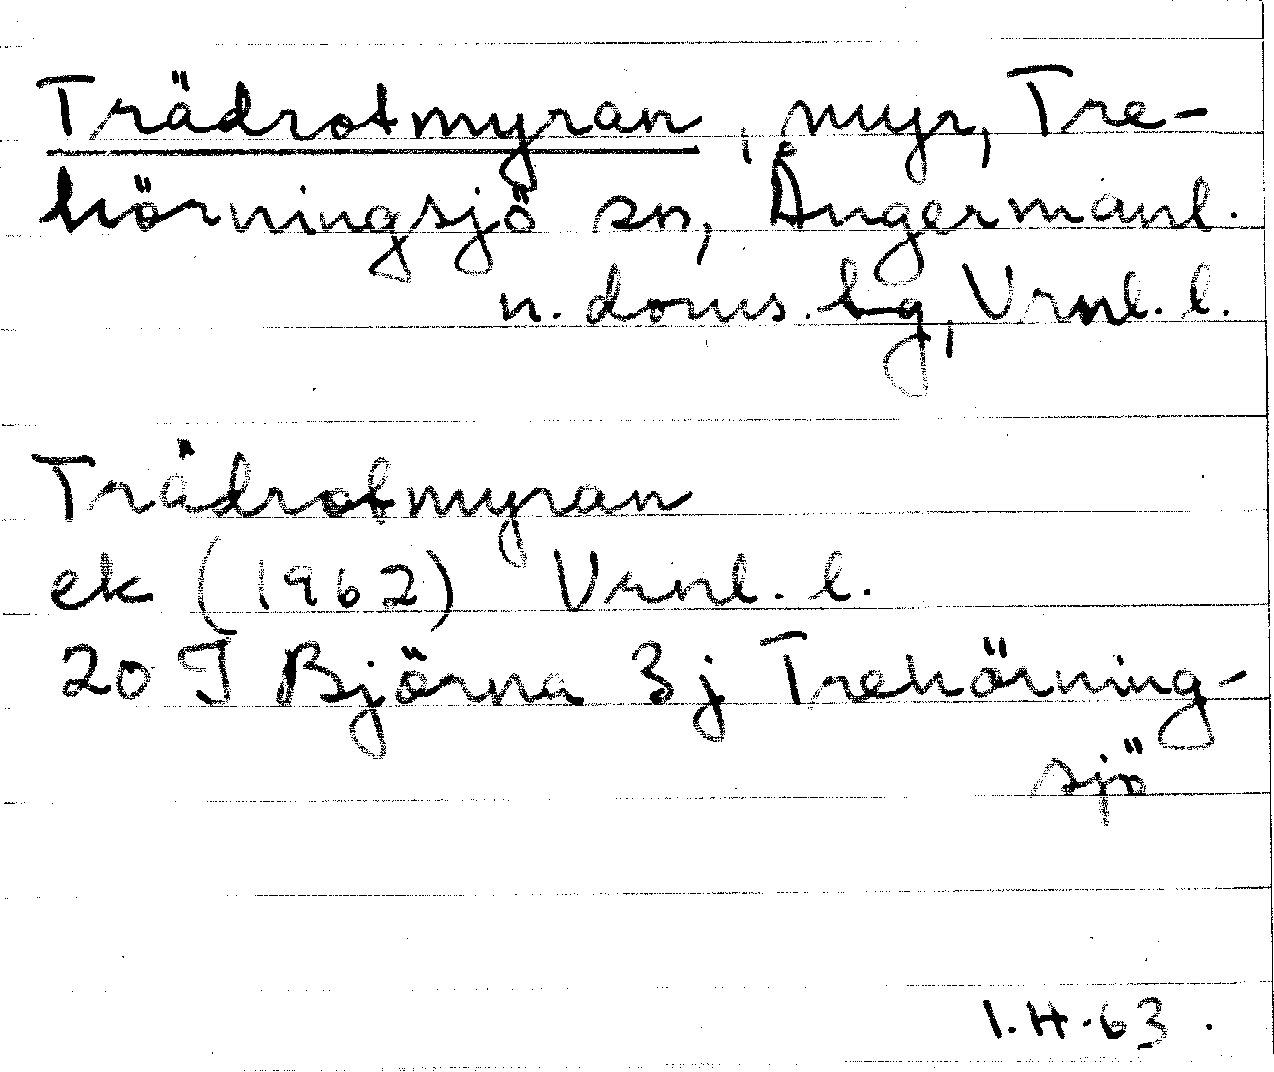 Trädrotmyran, myr, Tre-
hörningsjö sn, Ångermanl.
n. doms.bg, Vrnl. l.
Trädrotmyran
ek (1962) Vrnl. l.
20 I Björna 3j Trehörning-
sjö
I.H.63.